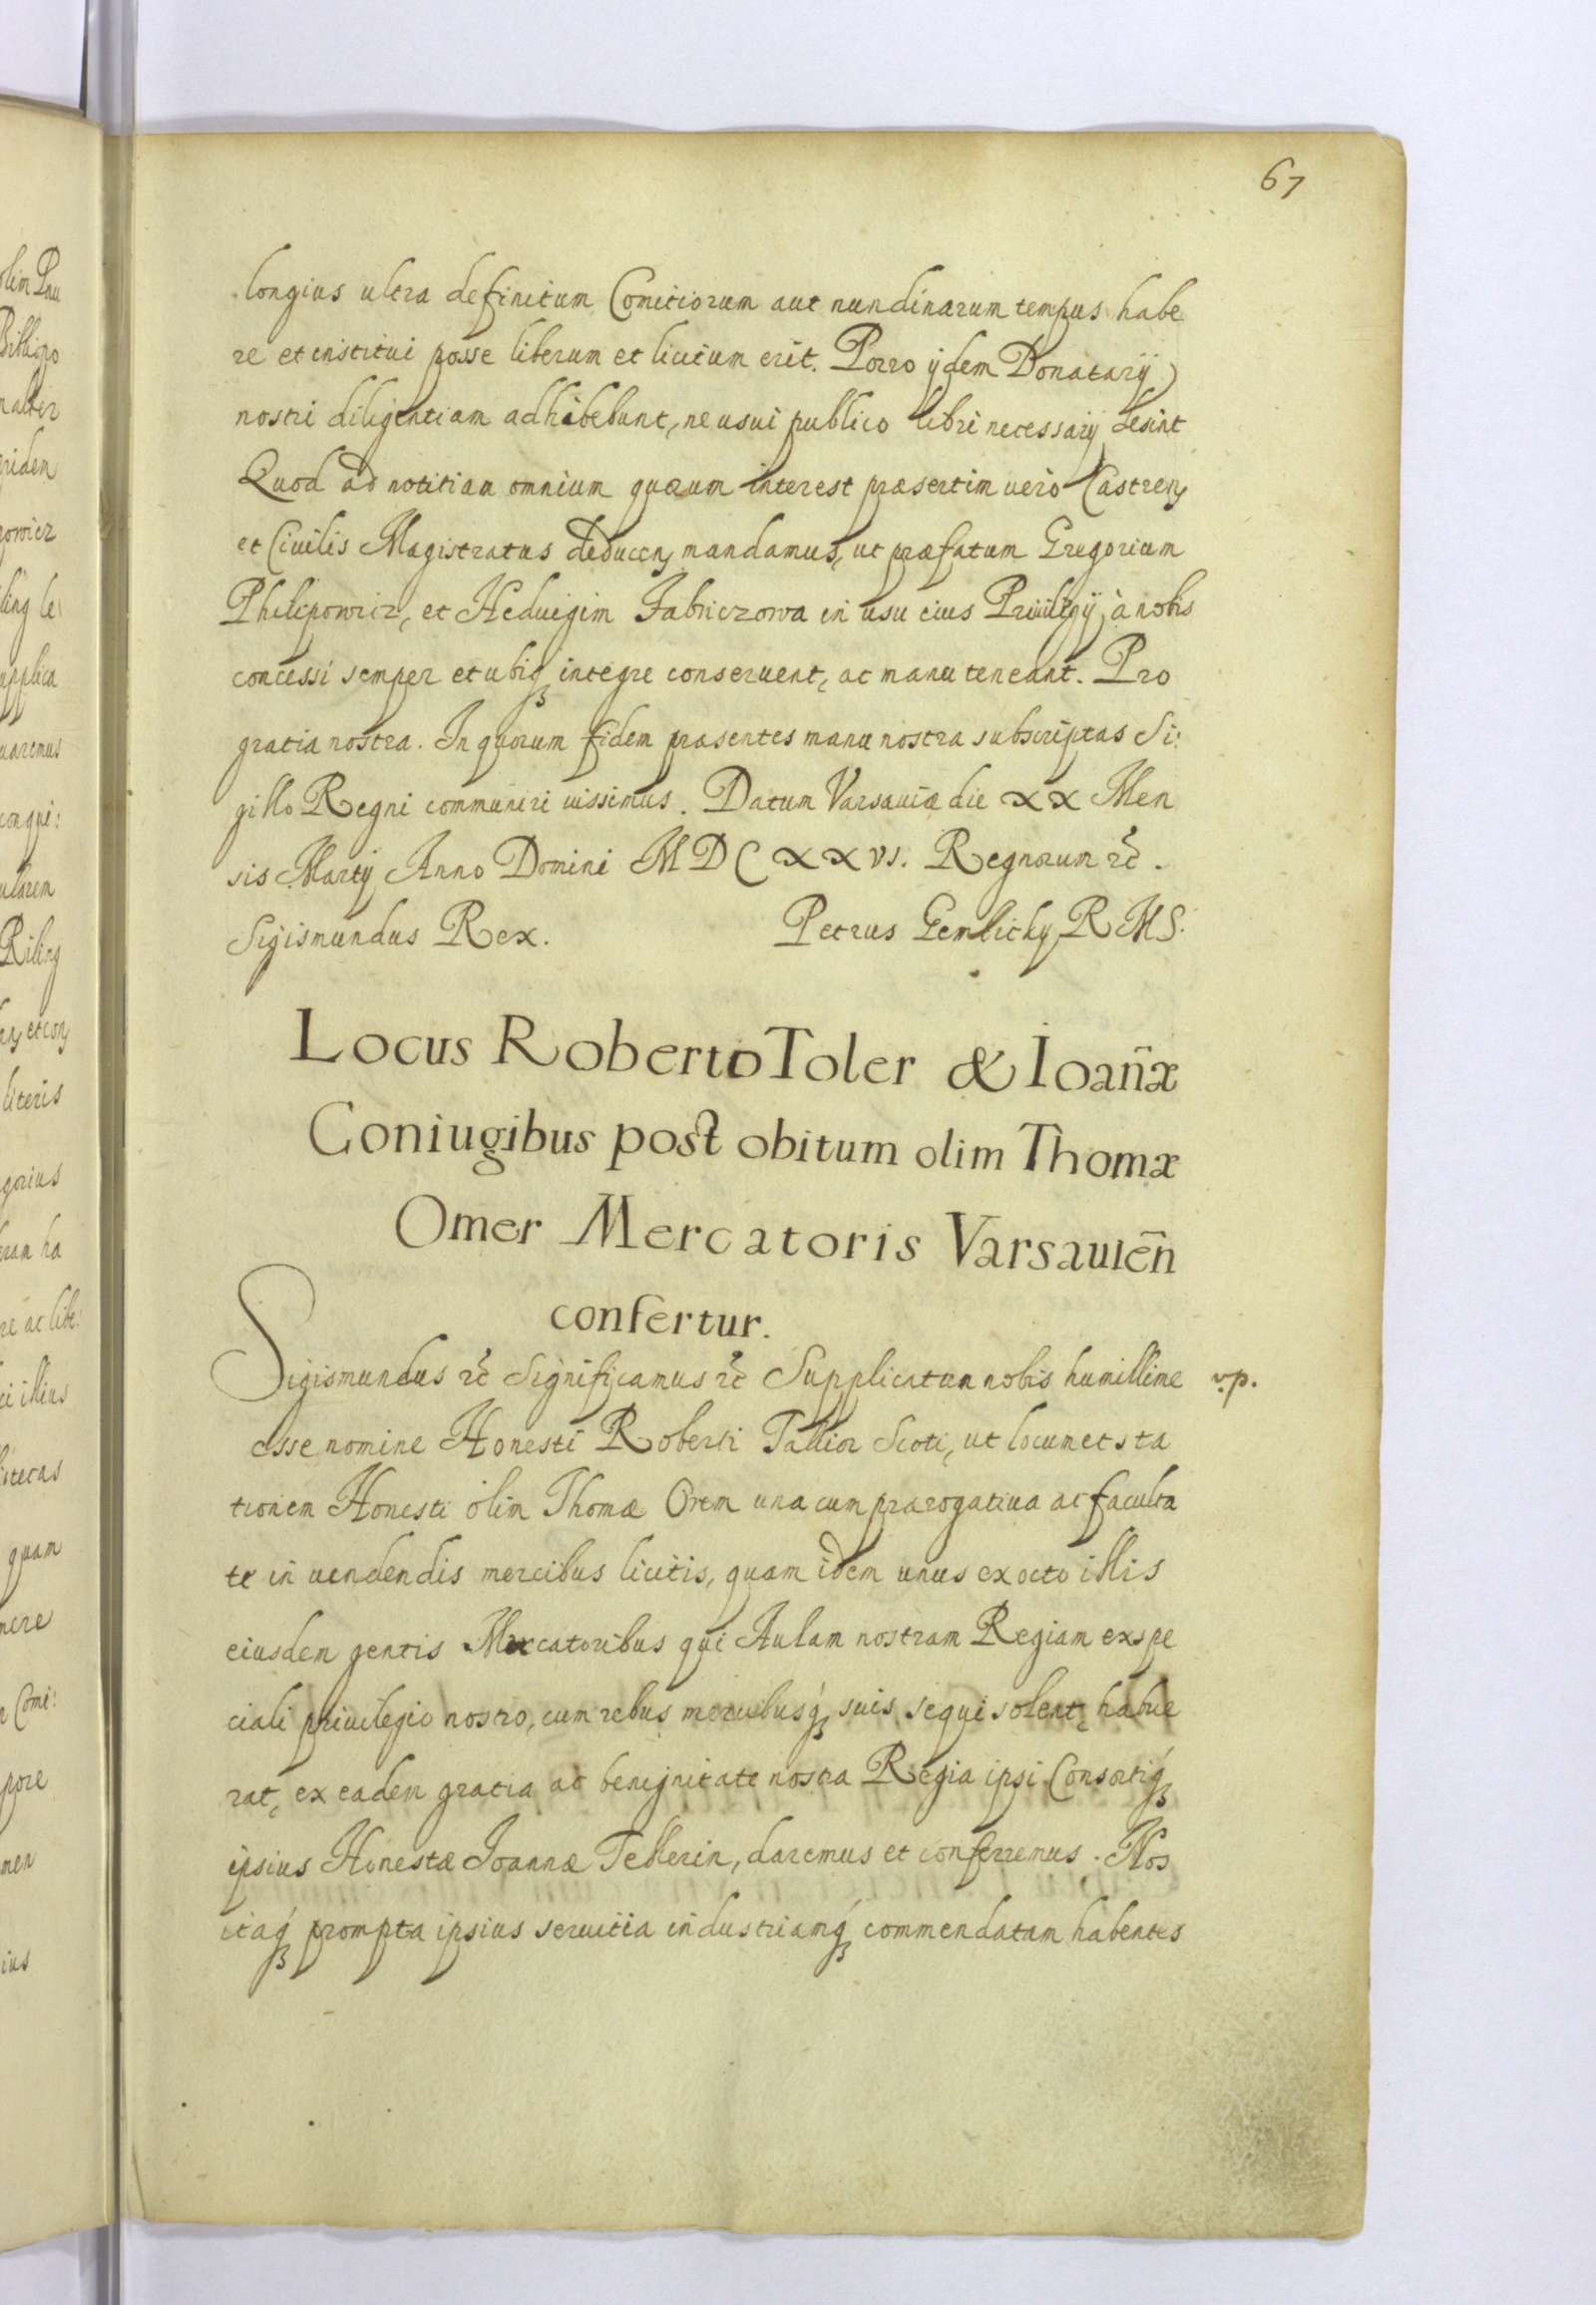 67
longius ultra definitum Comitiorum aut nundinarum tempus habe
re et institui posse liberum et licitum erit. Porro ijdem Donatarij
nostri diligentiam adhibebunt, ne usui publico libri necessarij desint
Quod ad notitiam omnium quorum interest præsertim uerò Castren̄
et Ciuilis Magistratus deducen̄ mandamus, ut præfatum Gregorium
Philipowicz, et Heduigim Fabriczowa in usu eius Priuilegij, à nobis
concessi semper et ubiq, integre conseruent, ac manu teneant. Pro
gratia nostra. In quorum fidem præsentes manu nostra subscriptas Si:
gillo Regni communiri iussimus. Datum Varsauiæ die XX Men
sis Martij Anno Domini MDCXXVI. Regnorum etc̄.
Sigismundus Rex. Petrus Gembicky R M S.
Locus Roberto Toler & Ioan̄æ
Coniugibus post obitum olim Thomæ
Omer Mercatoris Varsauien̄
confertur.
Sigismundus etc̄ Significamus etc̄ Supplicatum nobis humillime v.p.
esse nomine Honesti Roberti Tallior Scoti, ut locum et sta
tionem Honesti olim Thomæ Orem una cum prærogatiua ac faculta
te in uendendis mercibus licitis, quam idem unus ex octo illis
eiusdem gentis Mercatoribus qui Aulam nostram Regiam ex spe
ciali priuilegio nostro, cum rebus mercibusq́, suis sequi solent, habue
rat, ex eadem gratia ac benignitate nostra Regia ipsi Consortiq́,
ipsius Honestæ Joannæ Tellerin, daremus et conferremus. Nos
itaq́, prompta ipsius seruitia industriamq́, commendatam habentes